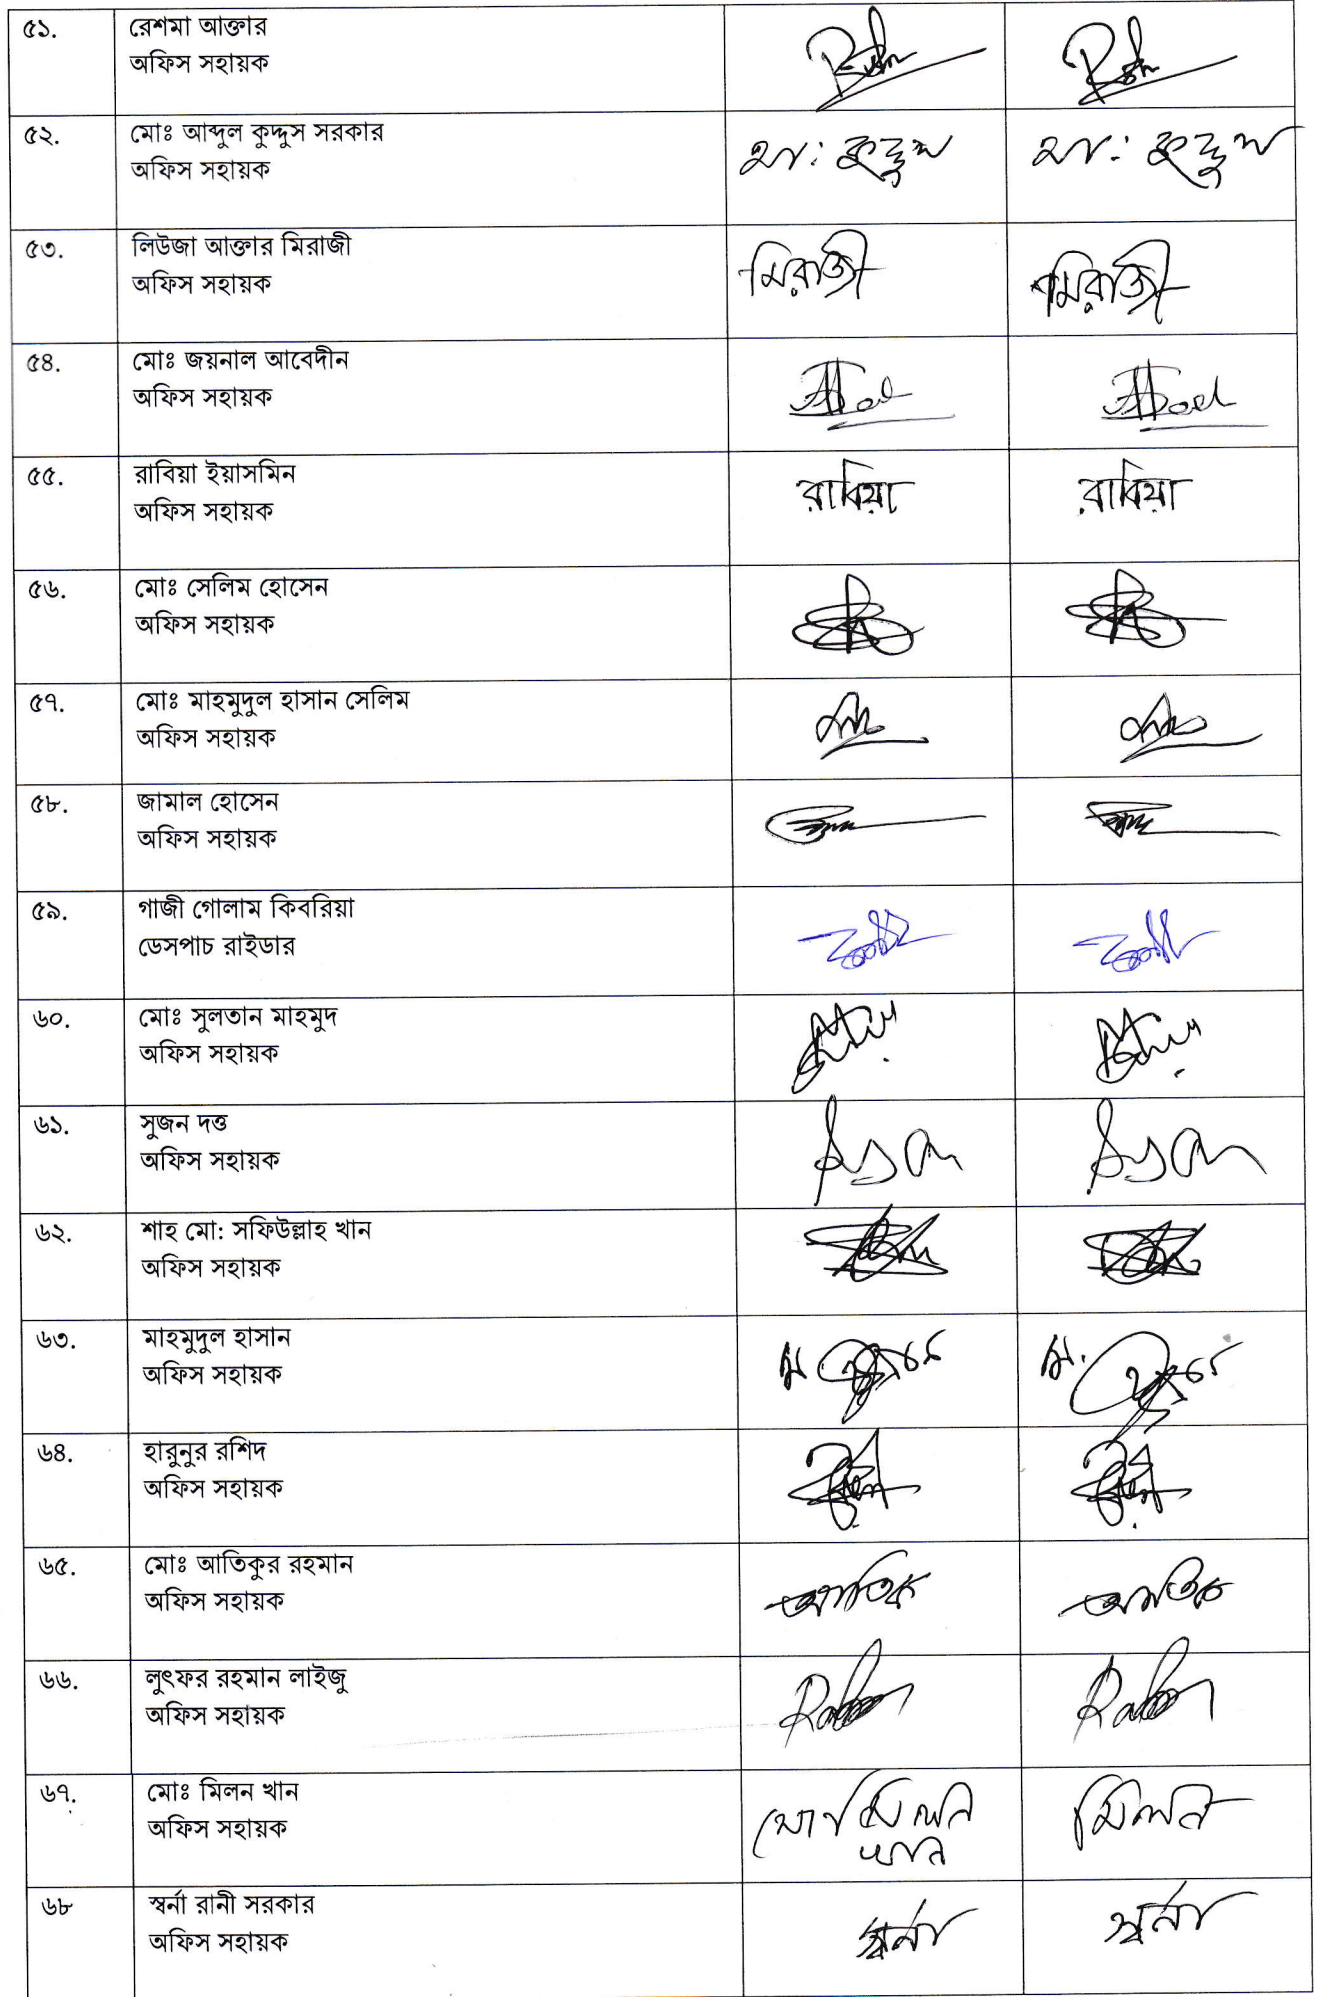 ৫১. রেশমা আক্তার
অফিস সহায়ক
৫২. মোঃ আব্দুল কুদ্দুস সরকার
অফিস সহায়ক
৫৩. লিউজা আক্তার মিরাজী
অফিস সহায়ক
মিরাজী মিরাজী
৫৪. মোঃ জয়নাল আবেদীন
অফিস সহায়ক
৫৫. রাবিয়া ইয়াসমিন
রাবিয়া রাবিয়া
অফিস সহায়ক
৫৬. মোঃ সেলিম হোসেন
অফিস সহায়ক
৫৭. মোঃ মাহমুদুল হাসান সেলিম
অফিস সহায়ক
৫৮. জামাল হোসেন
অফিস সহায়ক
৫৯. গাজী গোলাম কিবরিয়া
ডেসপাচ রাইডার
৬০. মোঃ সুলতান মাহমুদ
অফিস সহায়ক
৬১. সুজন দত্ত
অফিস সহায়ক
৬২. শাহ মো: সফিউল্লাহ খান
অফিস সহায়ক
৬৩. মাহমুদুল হাসান
অফিস সহায়ক
৬৪. হারুনুর রশিদ
অফিস সহায়ক
৬৫. মোঃ আতিকুর রহমান
অফিস সহায়ক
আতিক আতিক
৬৬. লুৎফর রহমান লাইজু
অফিস সহায়ক
৬৭. মোঃ মিলন খান
অফিস সহায়ক
মোঃ মিলন মিলন
খান
৬৮ স্বর্না রানী সরকার
অফিস সহায়ক
স্বর্না স্বর্না